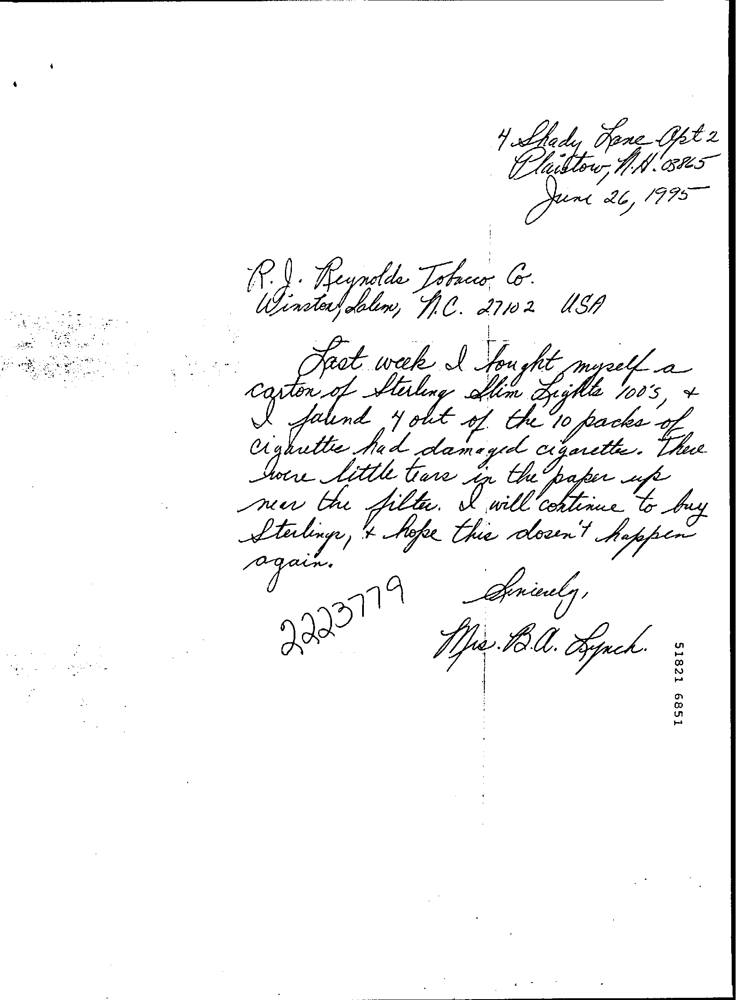 4 Shady Lane Apt 2
Plaistow, N.H. 03865
June 26, 1995
R. J. Reynolds Tobacco Co.
Winston, Salem, N.C. 27102 USA
Last week I bought myself a
carton of Sterling Slim Lights 100's, +
I found 4 out of the 10 packs of
cigarettes had damaged cigarettes. There
were little tears in the paper up
near the filter. I will continue to buy
Sterlings, + hope this dosen't happen
again.
Sincerely,
2223779
Mrs. B.A. Lynch.
51821 6851